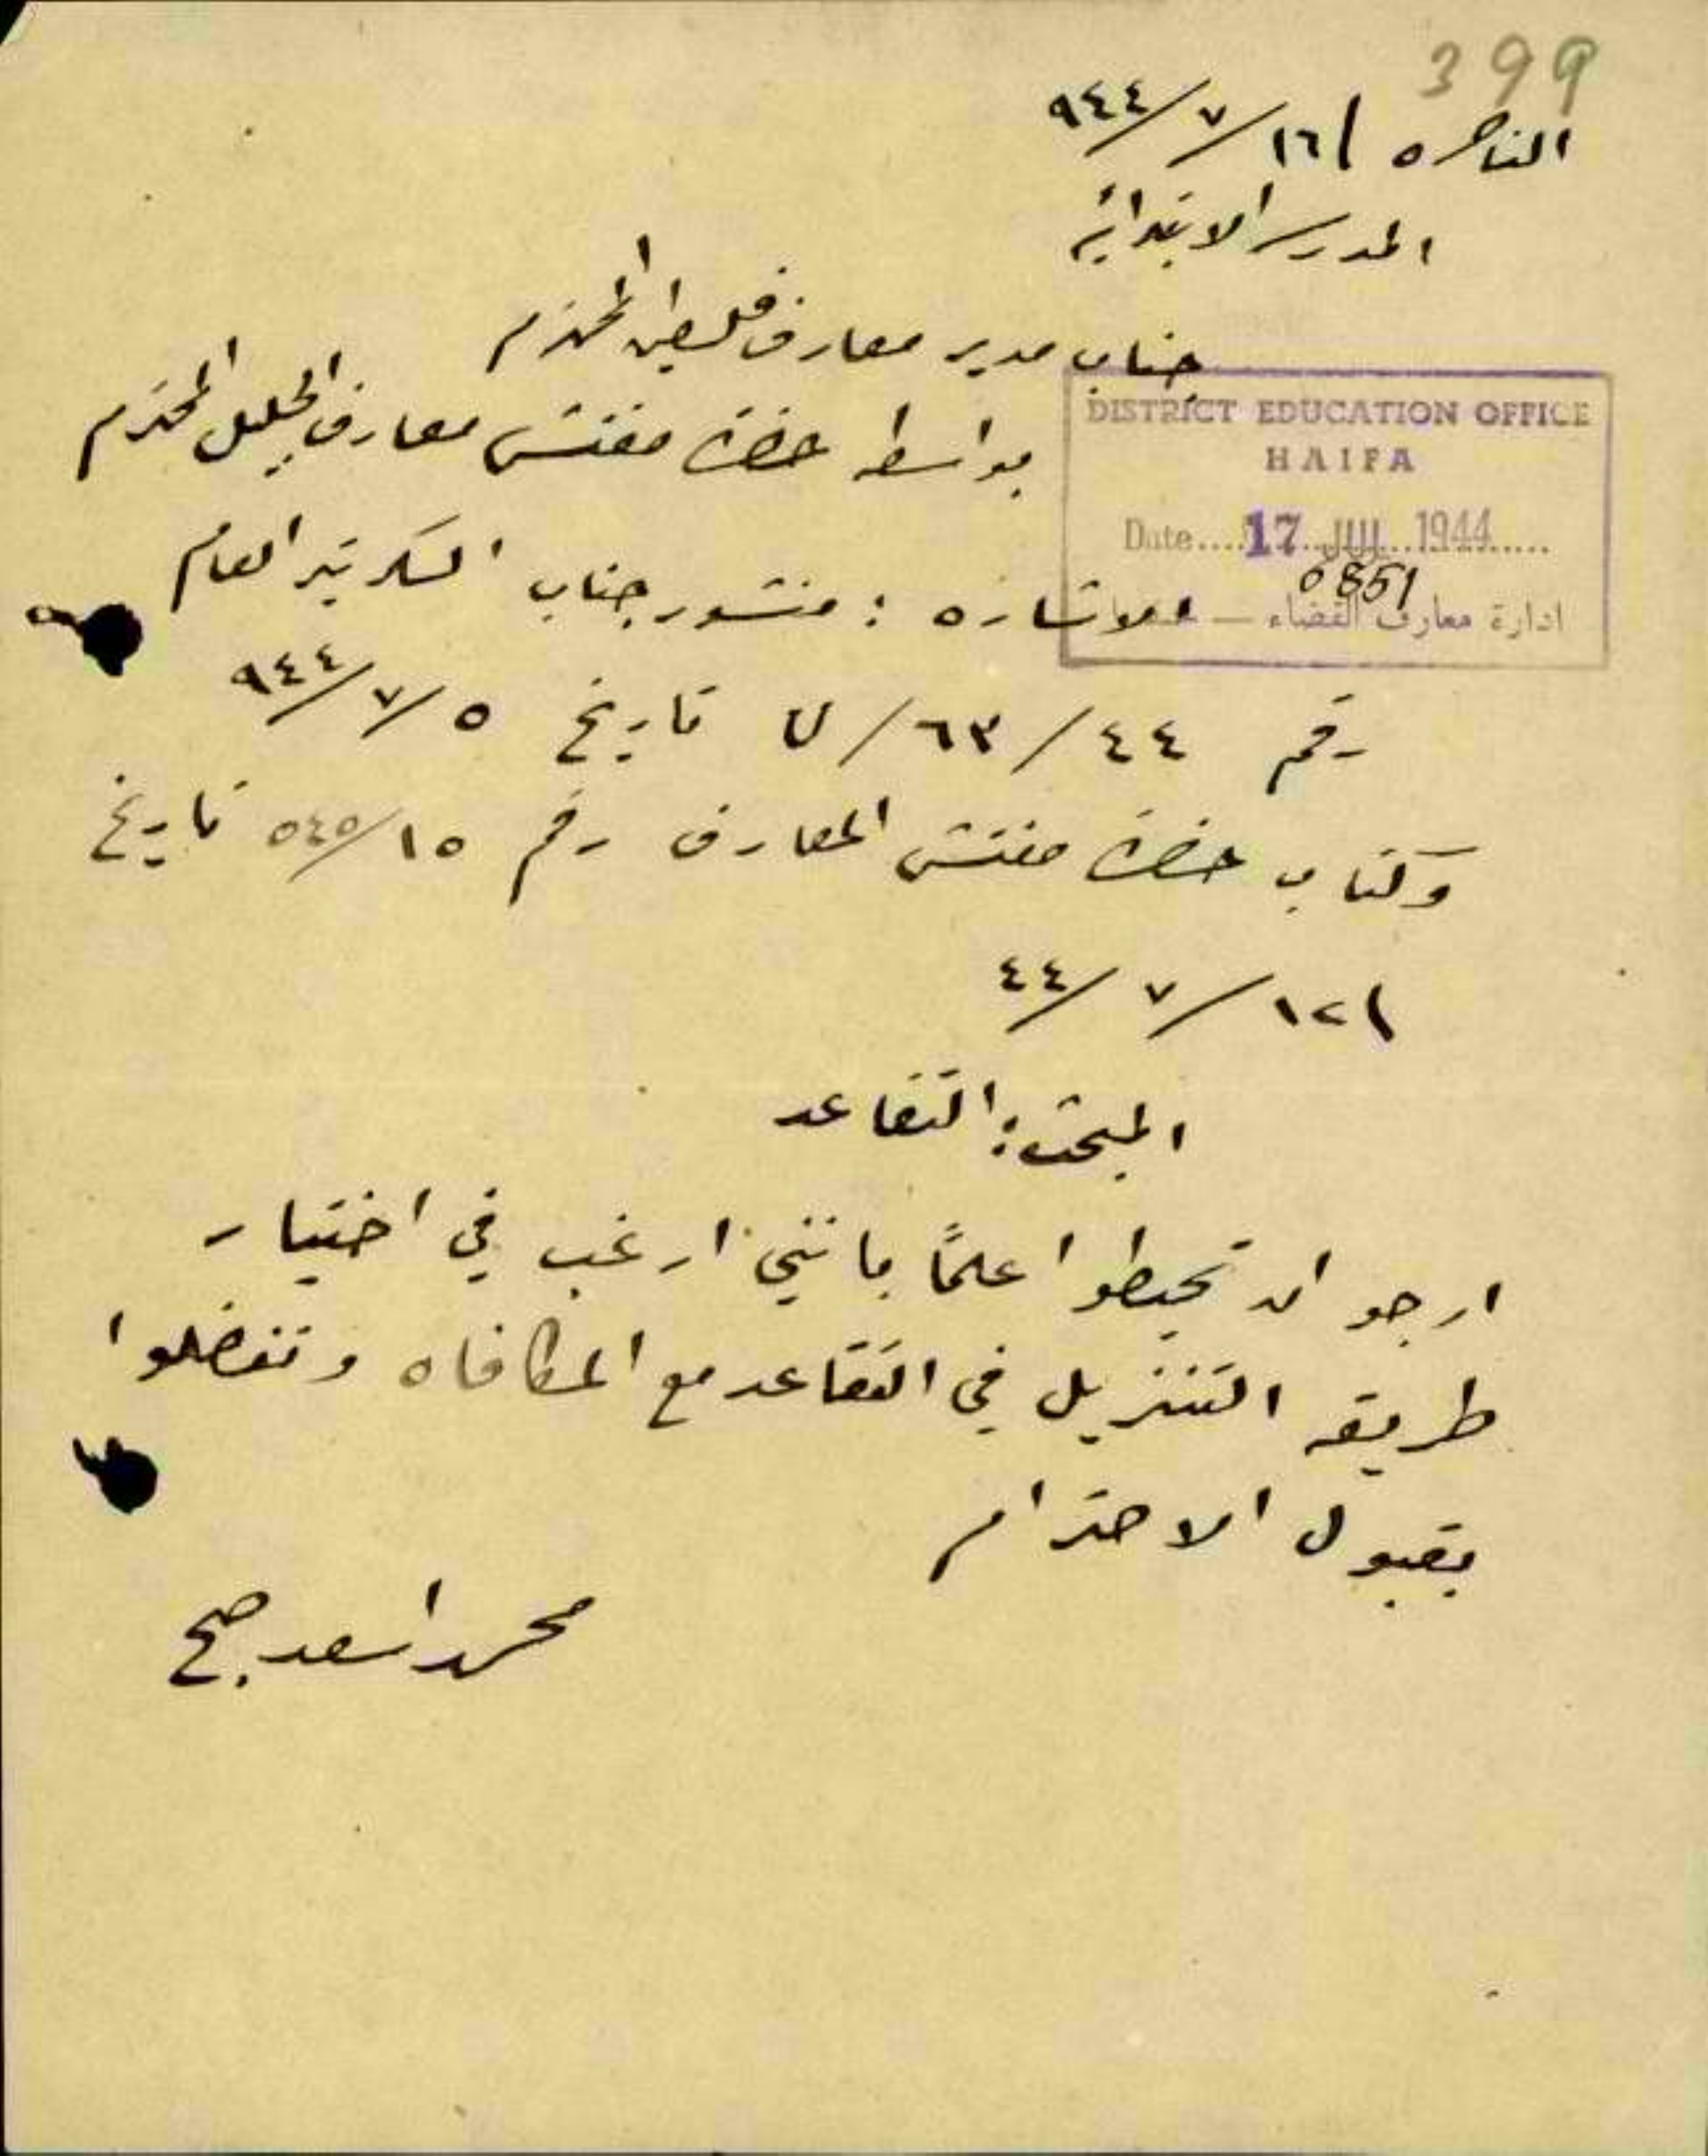 399
الناصره / ١٦/٧/٩٤٤
المدرسة الابتدائية
جناب مدير معارف فلسطين المحترم
بواسطة حضرة مفتش معارف الجليل المحترم
DISTRICT EDUCATION OFFICE
HAIFA
Date....17 JUL 1944.....
6851
ادارة معارف القضاء —
الاشاره : منشور جناب السكرتير العام
رقم ٤٤/٦٣/ل تاريخ ٥/٧/٩٤٤
وكتاب حضرة مفتش المعارف رقم ٥٤٥/١٥ تاريخ
/٧/٤٤
المبحث : التقاعد
ارجو ان تحيطوا علمًا بانني ارغب في اختيار
طريقه التنزيل في التقاعد مع المكافاه وتفضلوا
بقبول الاحترام
محمد اسعد صح